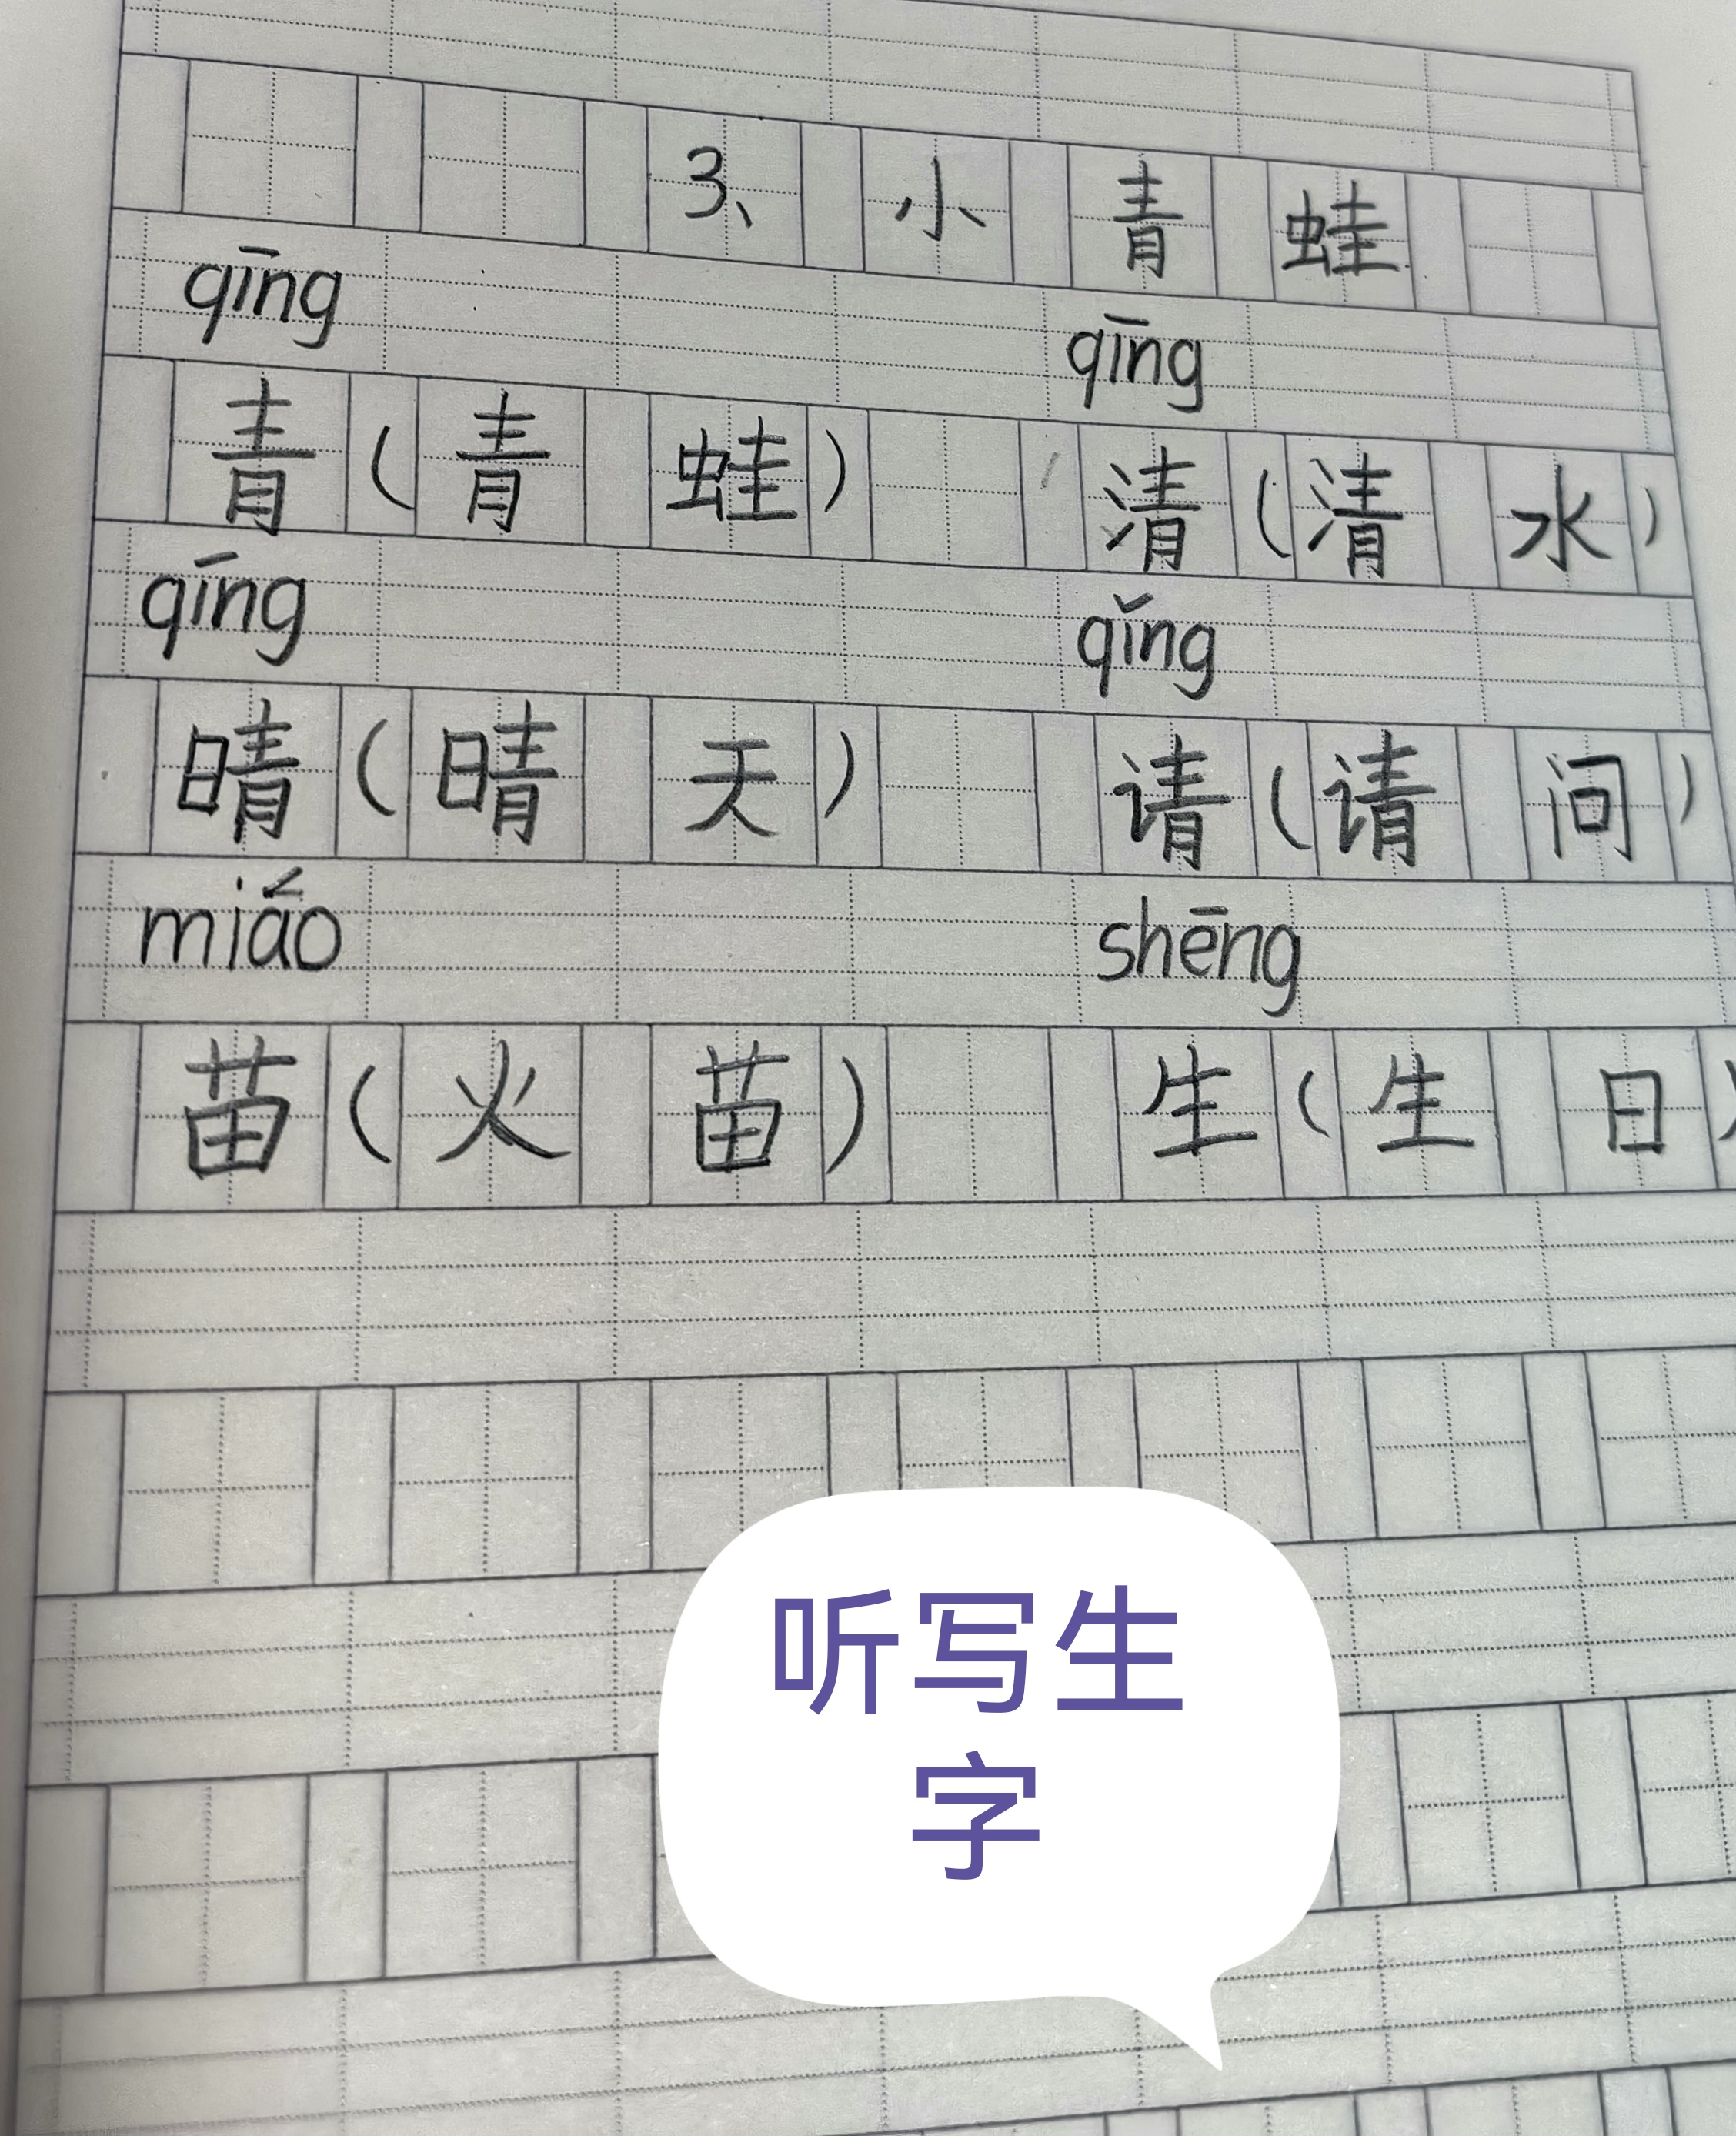 3、小青蛙
qīng qīng
青（青蛙） 清（清水）
qíng qǐng
晴（晴天） 请（请问）
miáo shēng
苗（火苗） 生（生日）
听写生
字